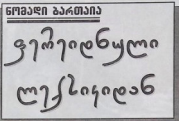 ნომადი ბართაია
ფერეიდნული
ლექსიკიდან